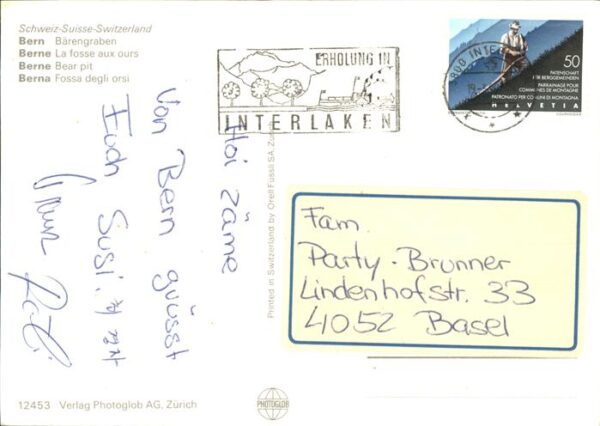 Schweiz-Suisse-Switzerland
Bern Bärengraben
Berne La fosse aux ours
Berne Bear pit
Berna Fossa degli orsi
ERHOLUNG IN
INTERLAKEN
50
PATENSCHAFT
FÜR BERGGEMEINDEN
PARRAINAGE POUR
COMMUNES DE MONTAGNE
PATRONATO PER COMUNI DI MONTAGNA
HELVETIA
Hoi zäme
Von Bern grüsst
Euch Susi,
Printed in Switzerland by Orell Füssli SA
Fam.
Party-Brunner
Lindenhofstr. 33
4052 Basel
12453 Verlag Photoglob AG, Zürich
PHOTOGLOB